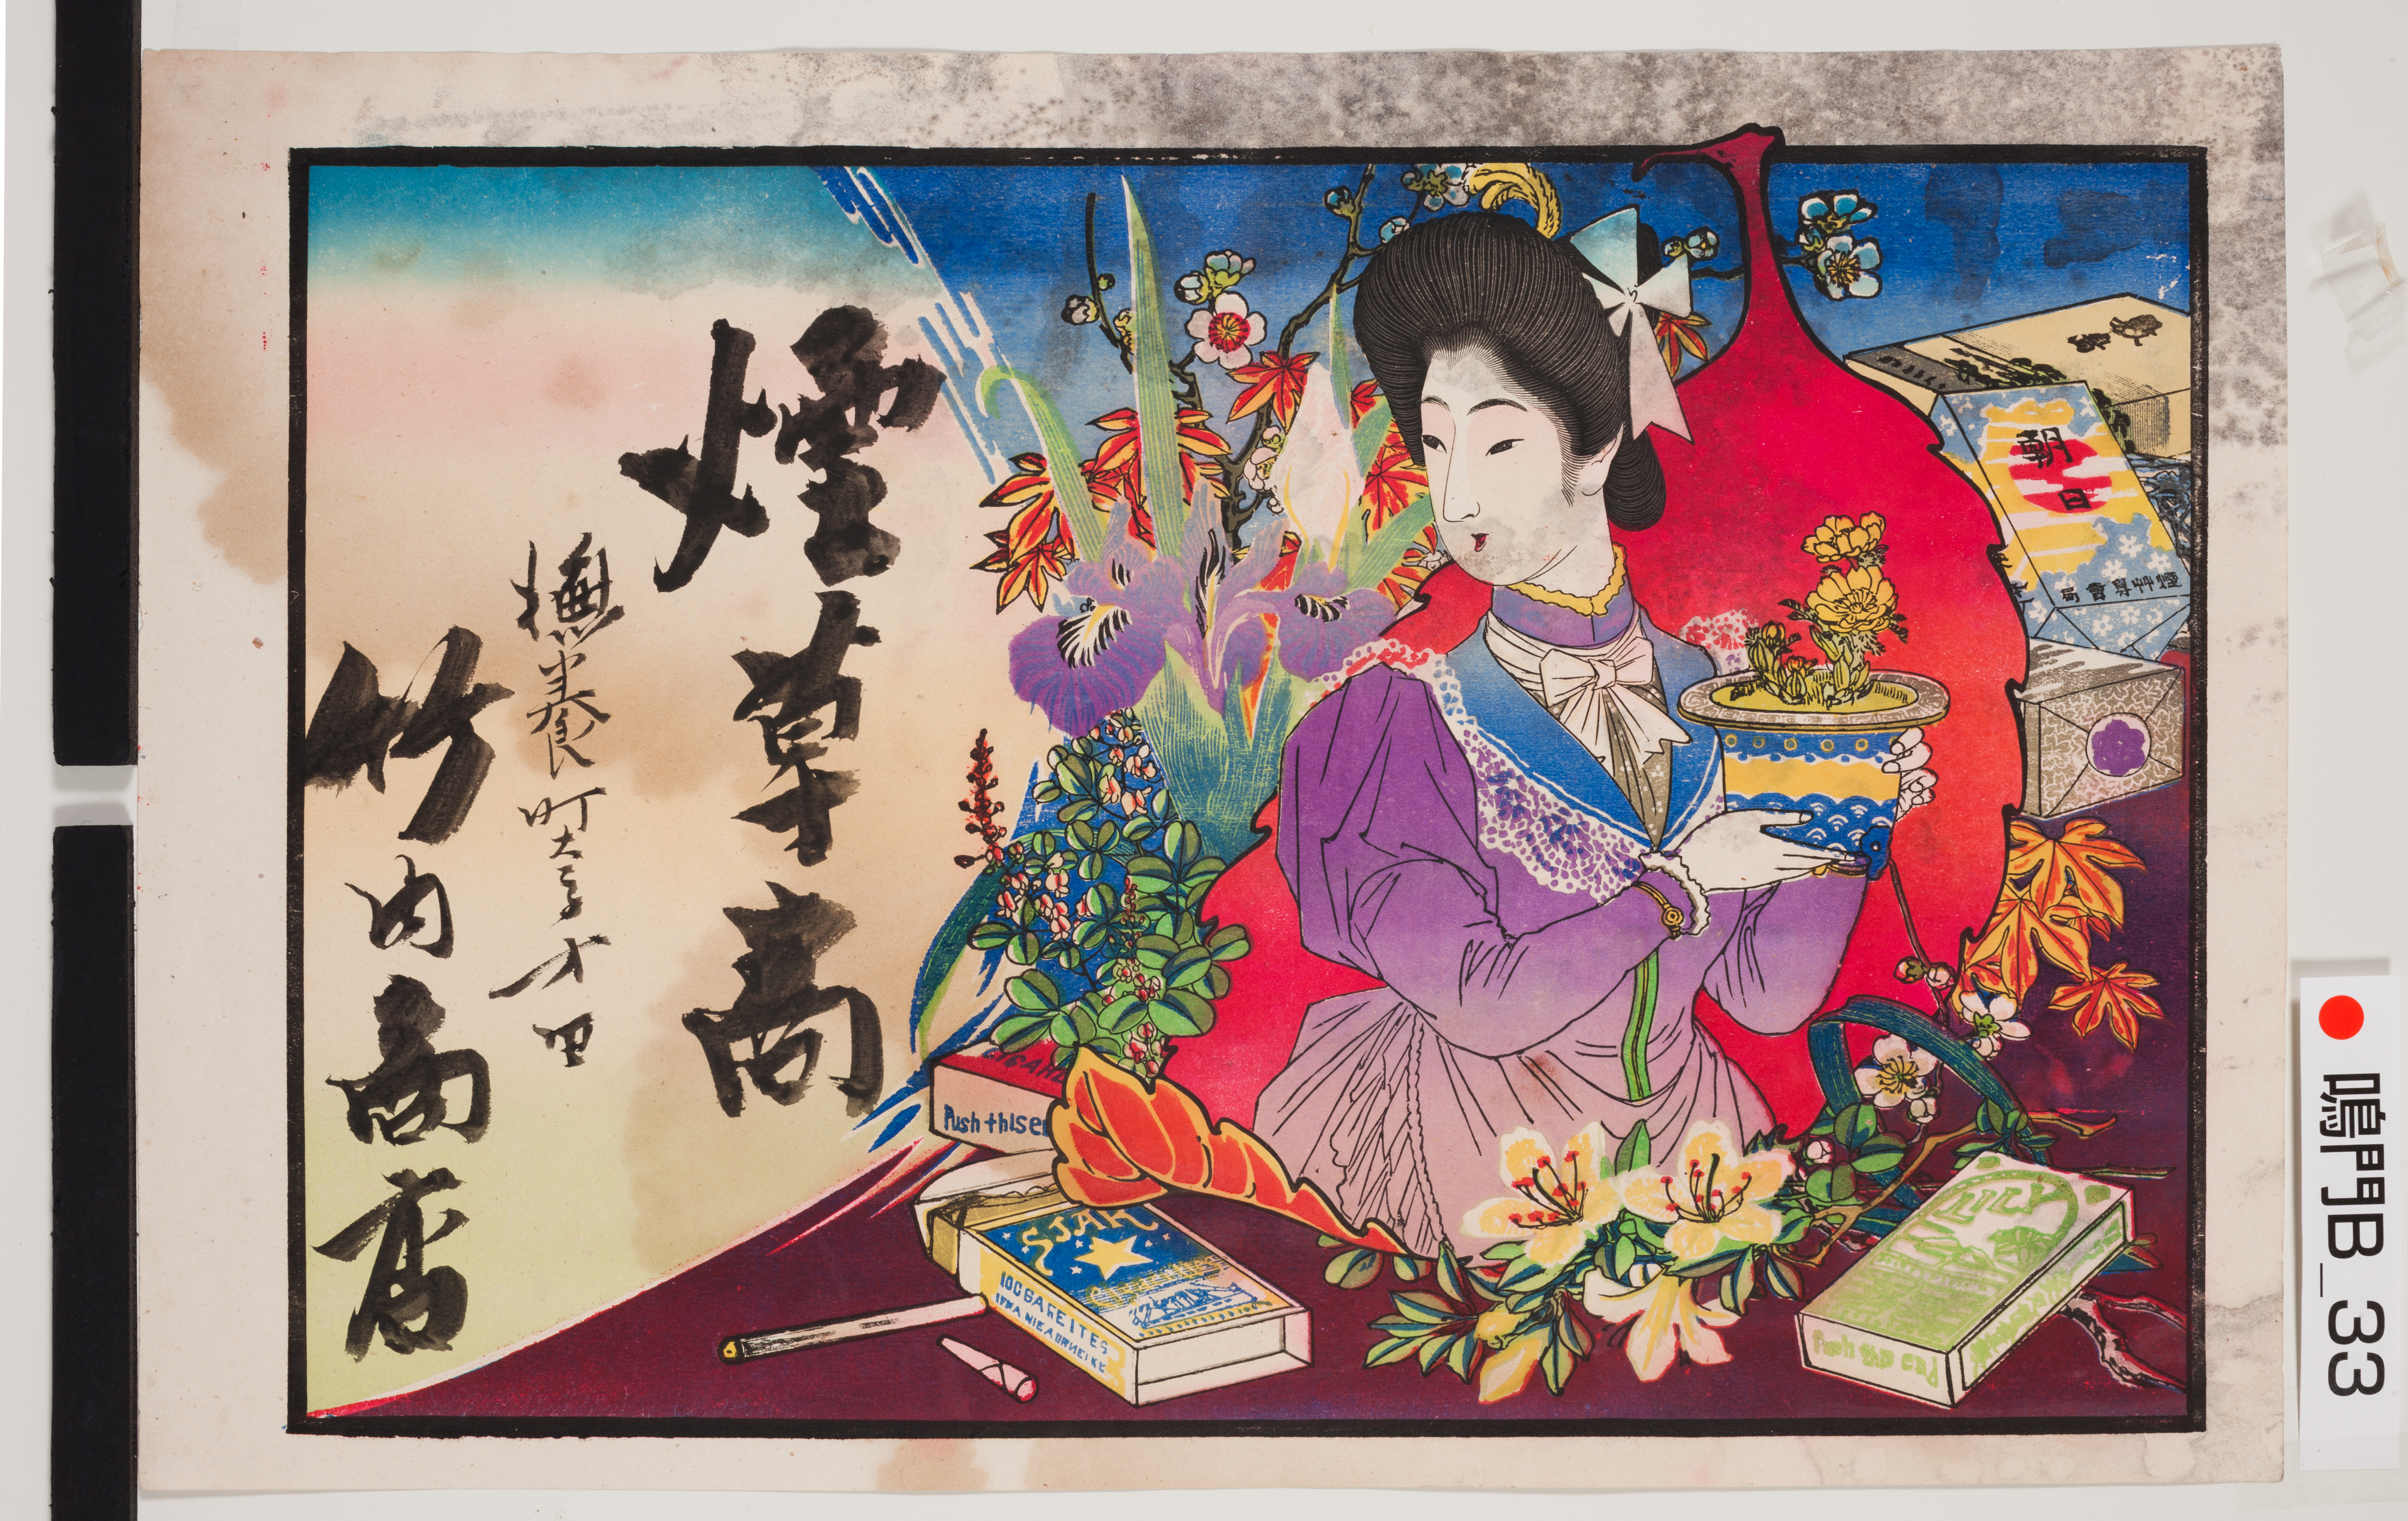 煙草商
撫養町大字才田
竹内商店
朝日
煙艸專賣局
Push thIs e
STAR
10CGAREITES
LILY
Push this end
鳴門B_33